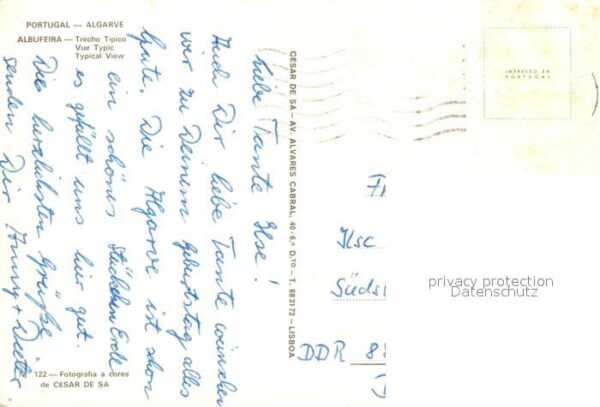 PORTUGAL — ALGARVE
ALBUFEIRA — Trecho Típico
Vue Typic
Typical View
Liebe Tante Ilse!
Auch Dir liebe Tante wünschen
wir zu Deinem Geburtstag alles
Gute. Die Algarve ist schon
ein schönes Stückchen Erde
es gefällt uns hier gut.
Die herzlichsten Grüße
senden Dir Anny + Dieter.
122 — Fotografia a cores
de CESAR DE SÁ
CESAR DE SÁ — AV. ALVARES CABRAL, 40-6.º D.TO — T. 683172 — LISBOA
IMPRESSO EM
PORTUGAL
Ilse
Südst
DDR 8
privacy protection
Datenschutz